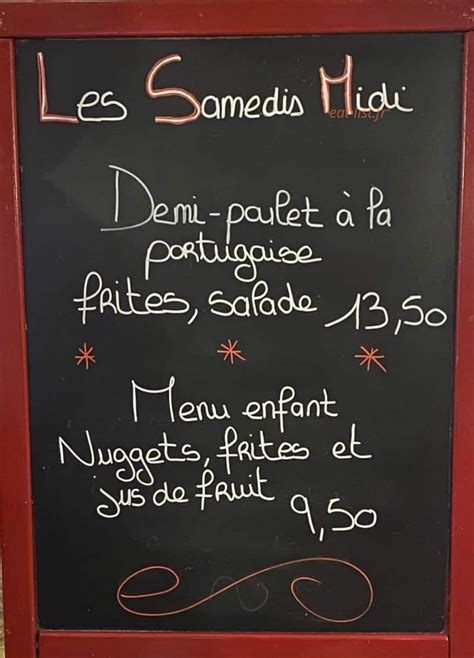 Les Samedis Midi
eat-list.fr
Demi-poulet à la
portugaise
frites, salade 13,50
Menu enfant
Nuggets, frites et
jus de fruit 9,50